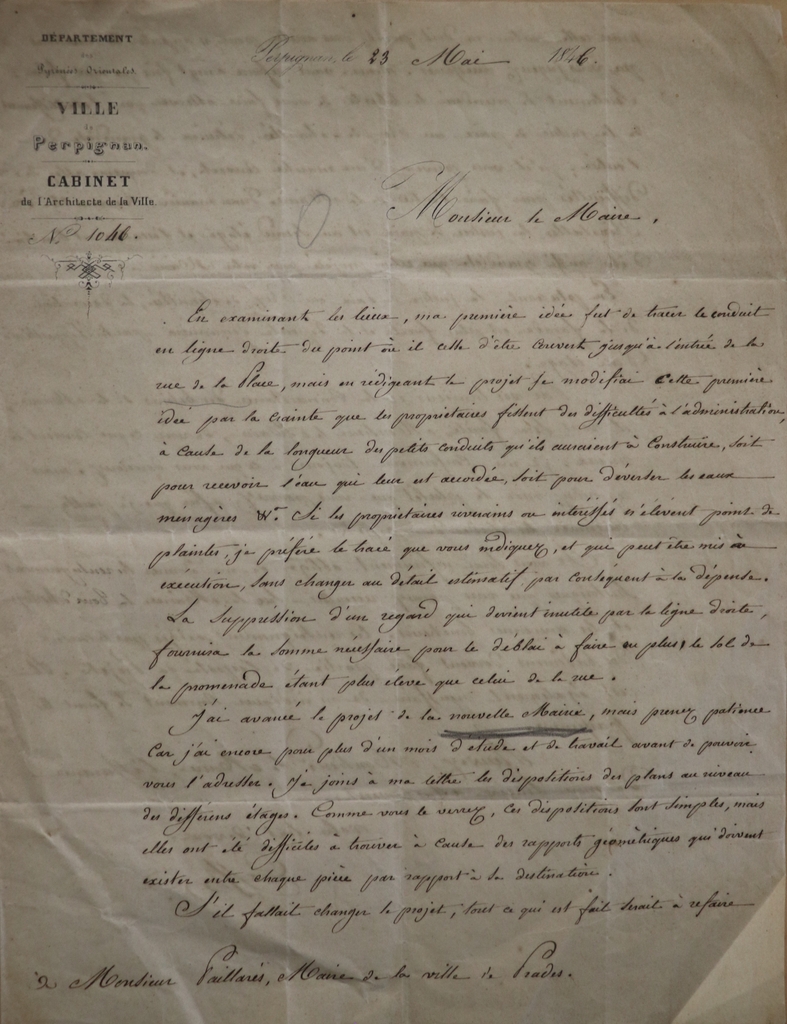 DÉPARTEMENT
des
Pyrénées Orientales.
VILLE
de
Perpignan.
CABINET
de l'Architecte de la Ville.
N° 1046.
Perpignan, le 23 Mai 1846.
Monsieur le Maire,
En examinant les lieux, ma première idée fut de tracer le conduit
en ligne droite du point où il cesse d'être couvert jusqu'à l'entrée de la
rue de la Place, mais en rédigeant le projet je modifiai cette première
idée par la crainte que les propriétaires fissent des difficultés à l'administration,
à cause de la longueur des petits conduits qu'ils auraient à construire, soit
pour recevoir l'eau qui leur est accordée, soit pour déverser les eaux
ménagères &c. Si les propriétaires riverains ou intéressés n'élèvent point de
plaintes, je préfère le tracé que vous indiquez, et qui peut être mis à
exécution, sans changer au détail estimatif par conséquent à la dépense.
La suppression d'un regard qui devient inutile par la ligne droite,
fournira la somme nécessaire pour le déblai à faire en plus, le sol de
la promenade étant plus élevé que celui de la rue.
J'ai avancé le projet de la nouvelle Mairie, mais prenez patience
car j'ai encore pour plus d'un mois d'étude et de travail avant de pouvoir
vous l'adresser. Je joins à ma lettre les dispositions des plans au niveau
des différens étages. Comme vous le verrez, ces dispositions sont simples, mais
elles ont été difficiles à trouver à cause des rapports géométriques qui doivent
exister entre chaque pièce par rapport à sa destination.
S'il fallait changer le projet, tout ce qui est fait serait à refaire
à Monsieur Paillarés, Maire de la ville de Prades.